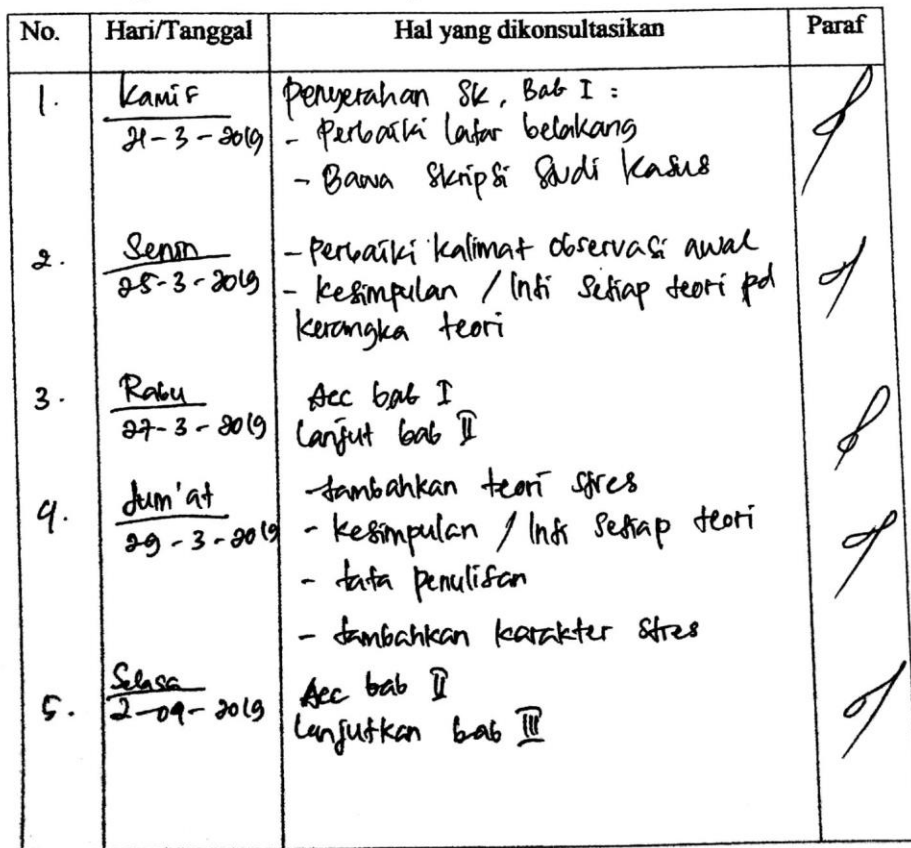 No. Hari/Tanggal Hal yang dikonsultasikan Paraf
1. Kamis Penyerahan SK, Bab I :
21-3-2019 - Perbaiki latar belakang
- Bawa Skripsi Studi Kasus
2. Senin - Perbaiki kalimat observasi awal
25-3-2019 - kesimpulan / Inti Setiap teori pd
kerangka teori
3. Rabu Acc bab I
27-3-2019 Lanjut bab II
4. Jum'at - tambahkan teori stres
29-3-2019 - kesimpulan / Inti Setiap teori
- tata penulisan
- tambahkan karakter Stres
5. Selasa Acc bab II
2-04-2019 Lanjutkan bab III